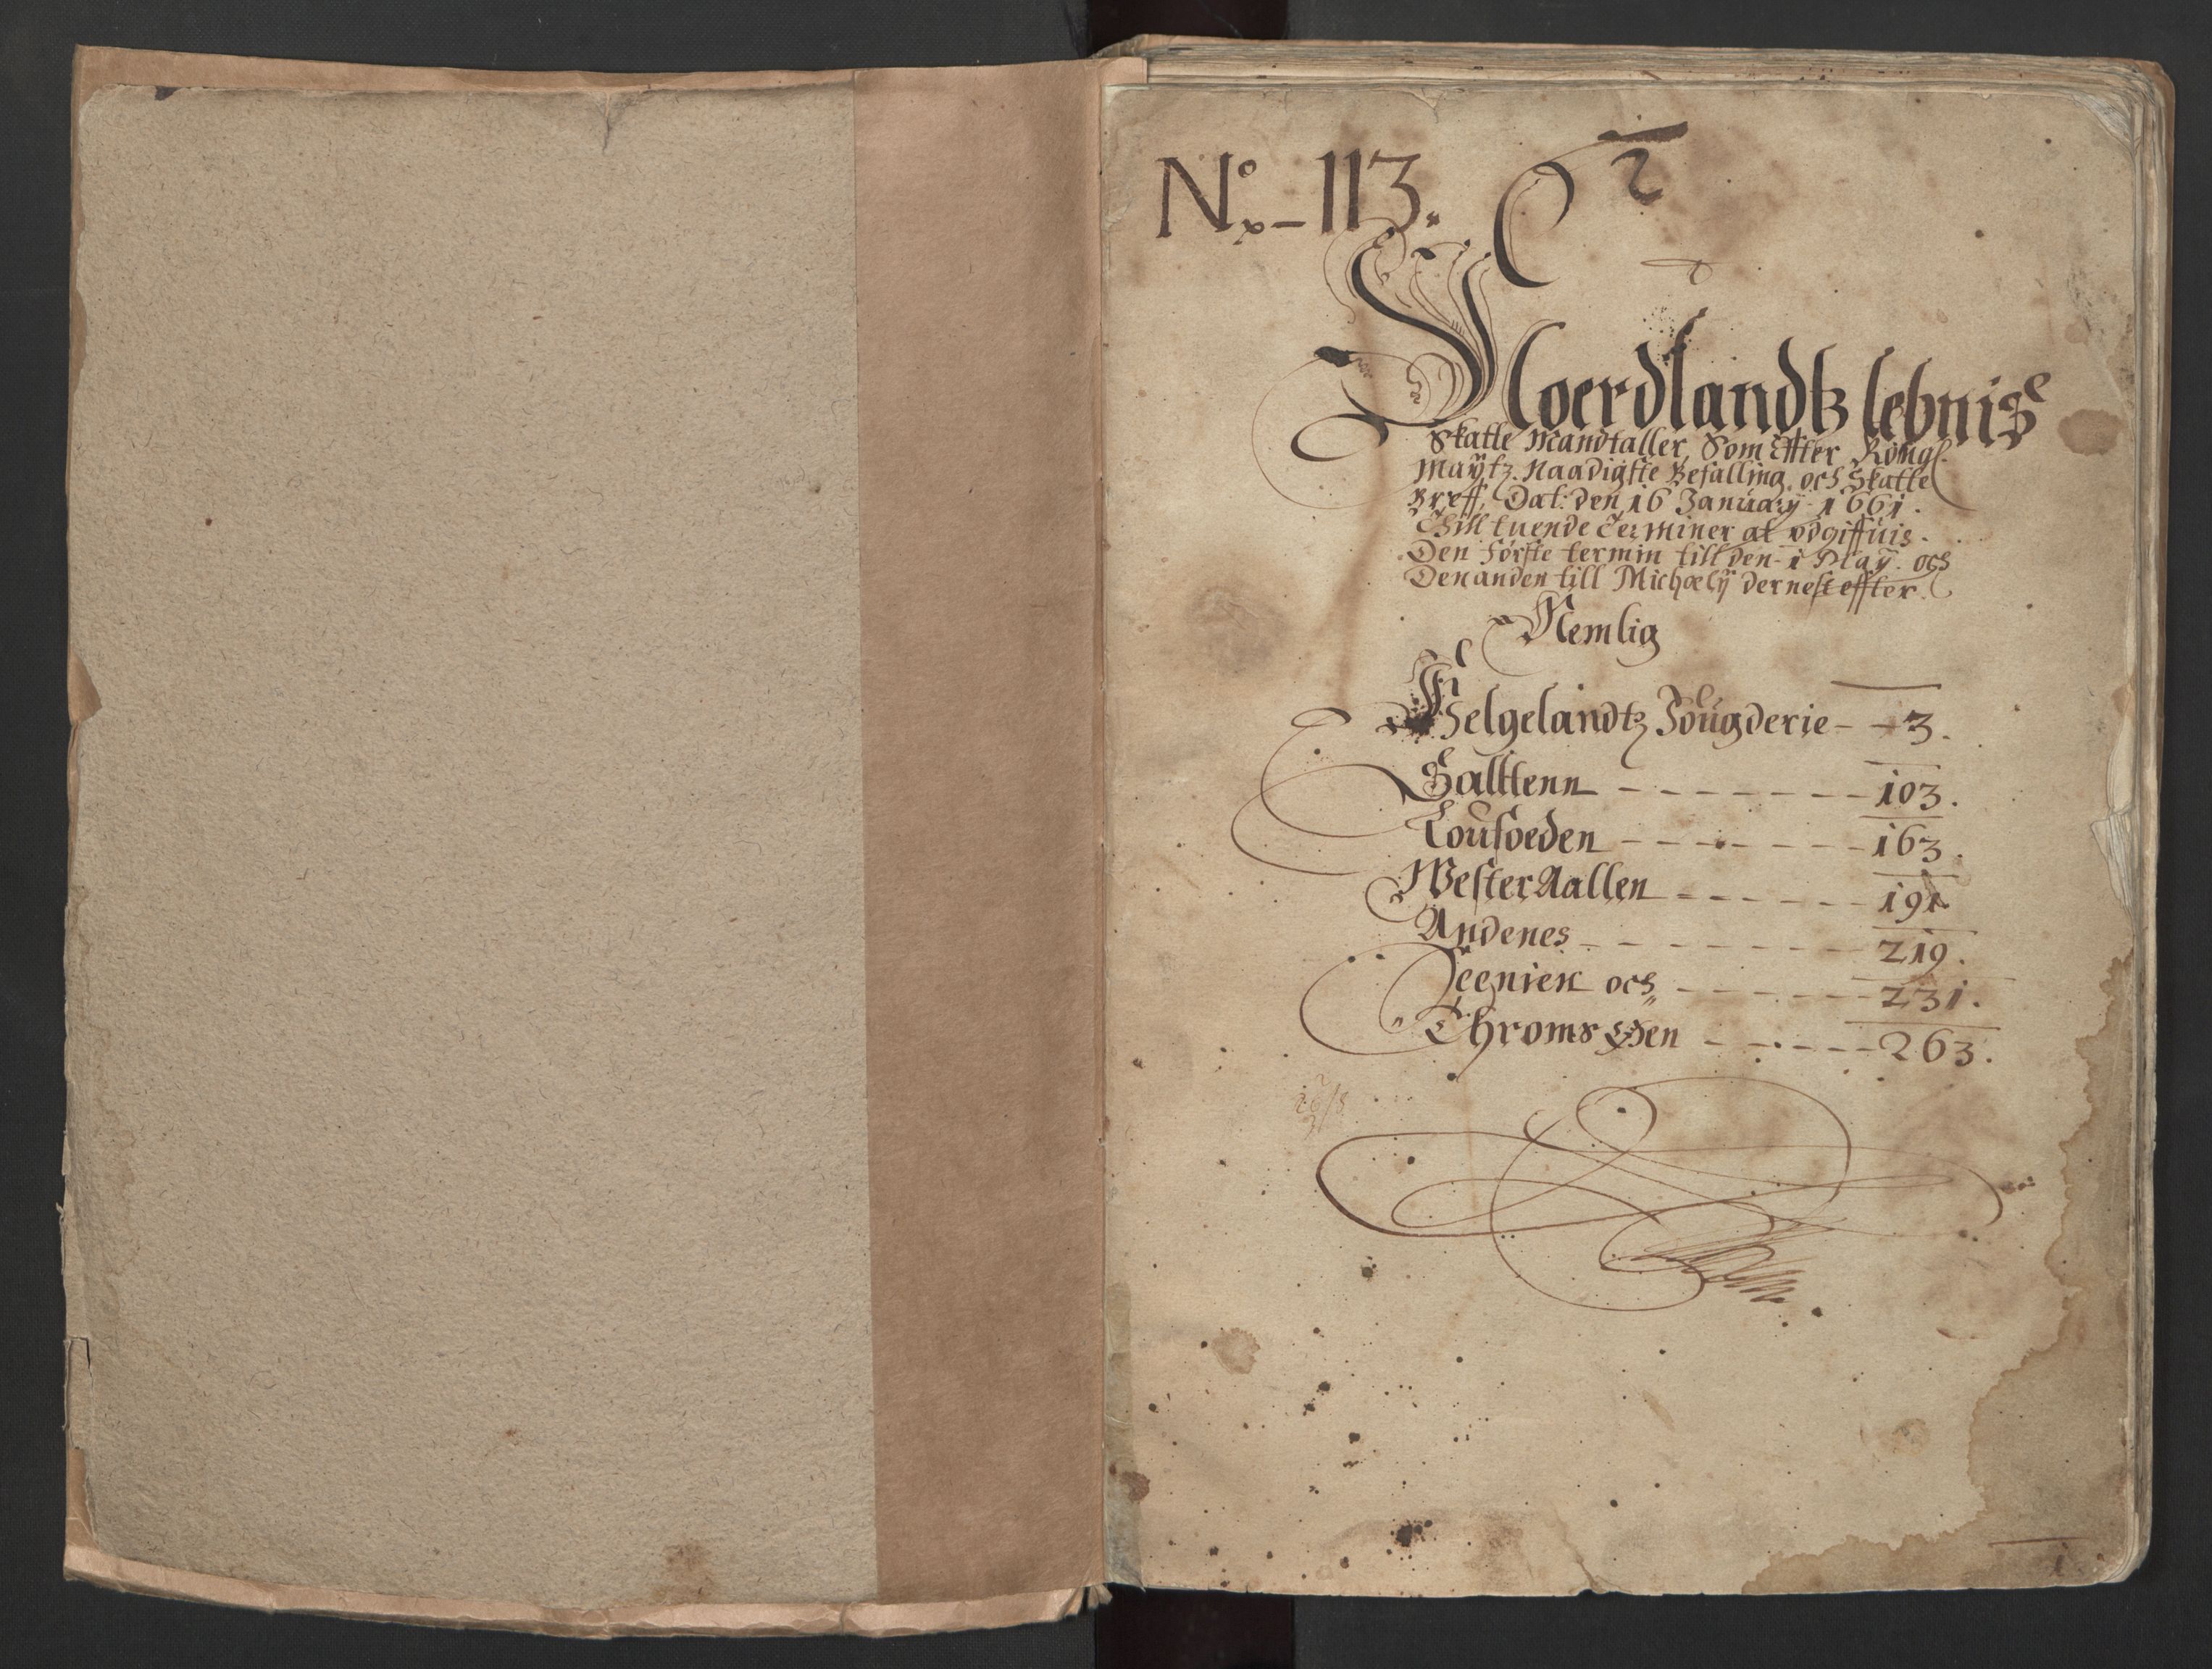 No - 113.
2
Noerdlandtz lehnis
Skatte Mandtaller, Som Effter Kongl
Maÿtz. Naadigste Befalling, och Skatte
Breff, Dat: den 16 Januarÿ 1661.
Thill tuende Terminer at vdgiffuis.
Den förste termin till den 1 Maÿ. och
Den anden till Michælÿ der nest effter.
Nemlig
Helgelandtz Fougderie - - 3.
Salltenn - - - - - - - 103.
Loufoeden - - - - - - - 163.
WesterAallen - - - - - - 191
Andenes - - - - - - - 219.
Seenien och - - - - - - 231.
Throms Øen - - - - - - 263.
1